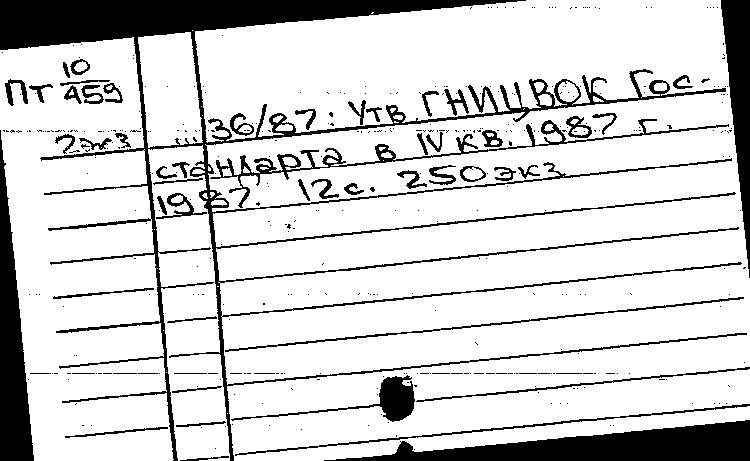 ПТ 10/459
2экз
... 36/87: Утв. ГНИЦВОК Гос-
стандарта в IV кв. 1987 г.
1987. 12 с. 250 экз